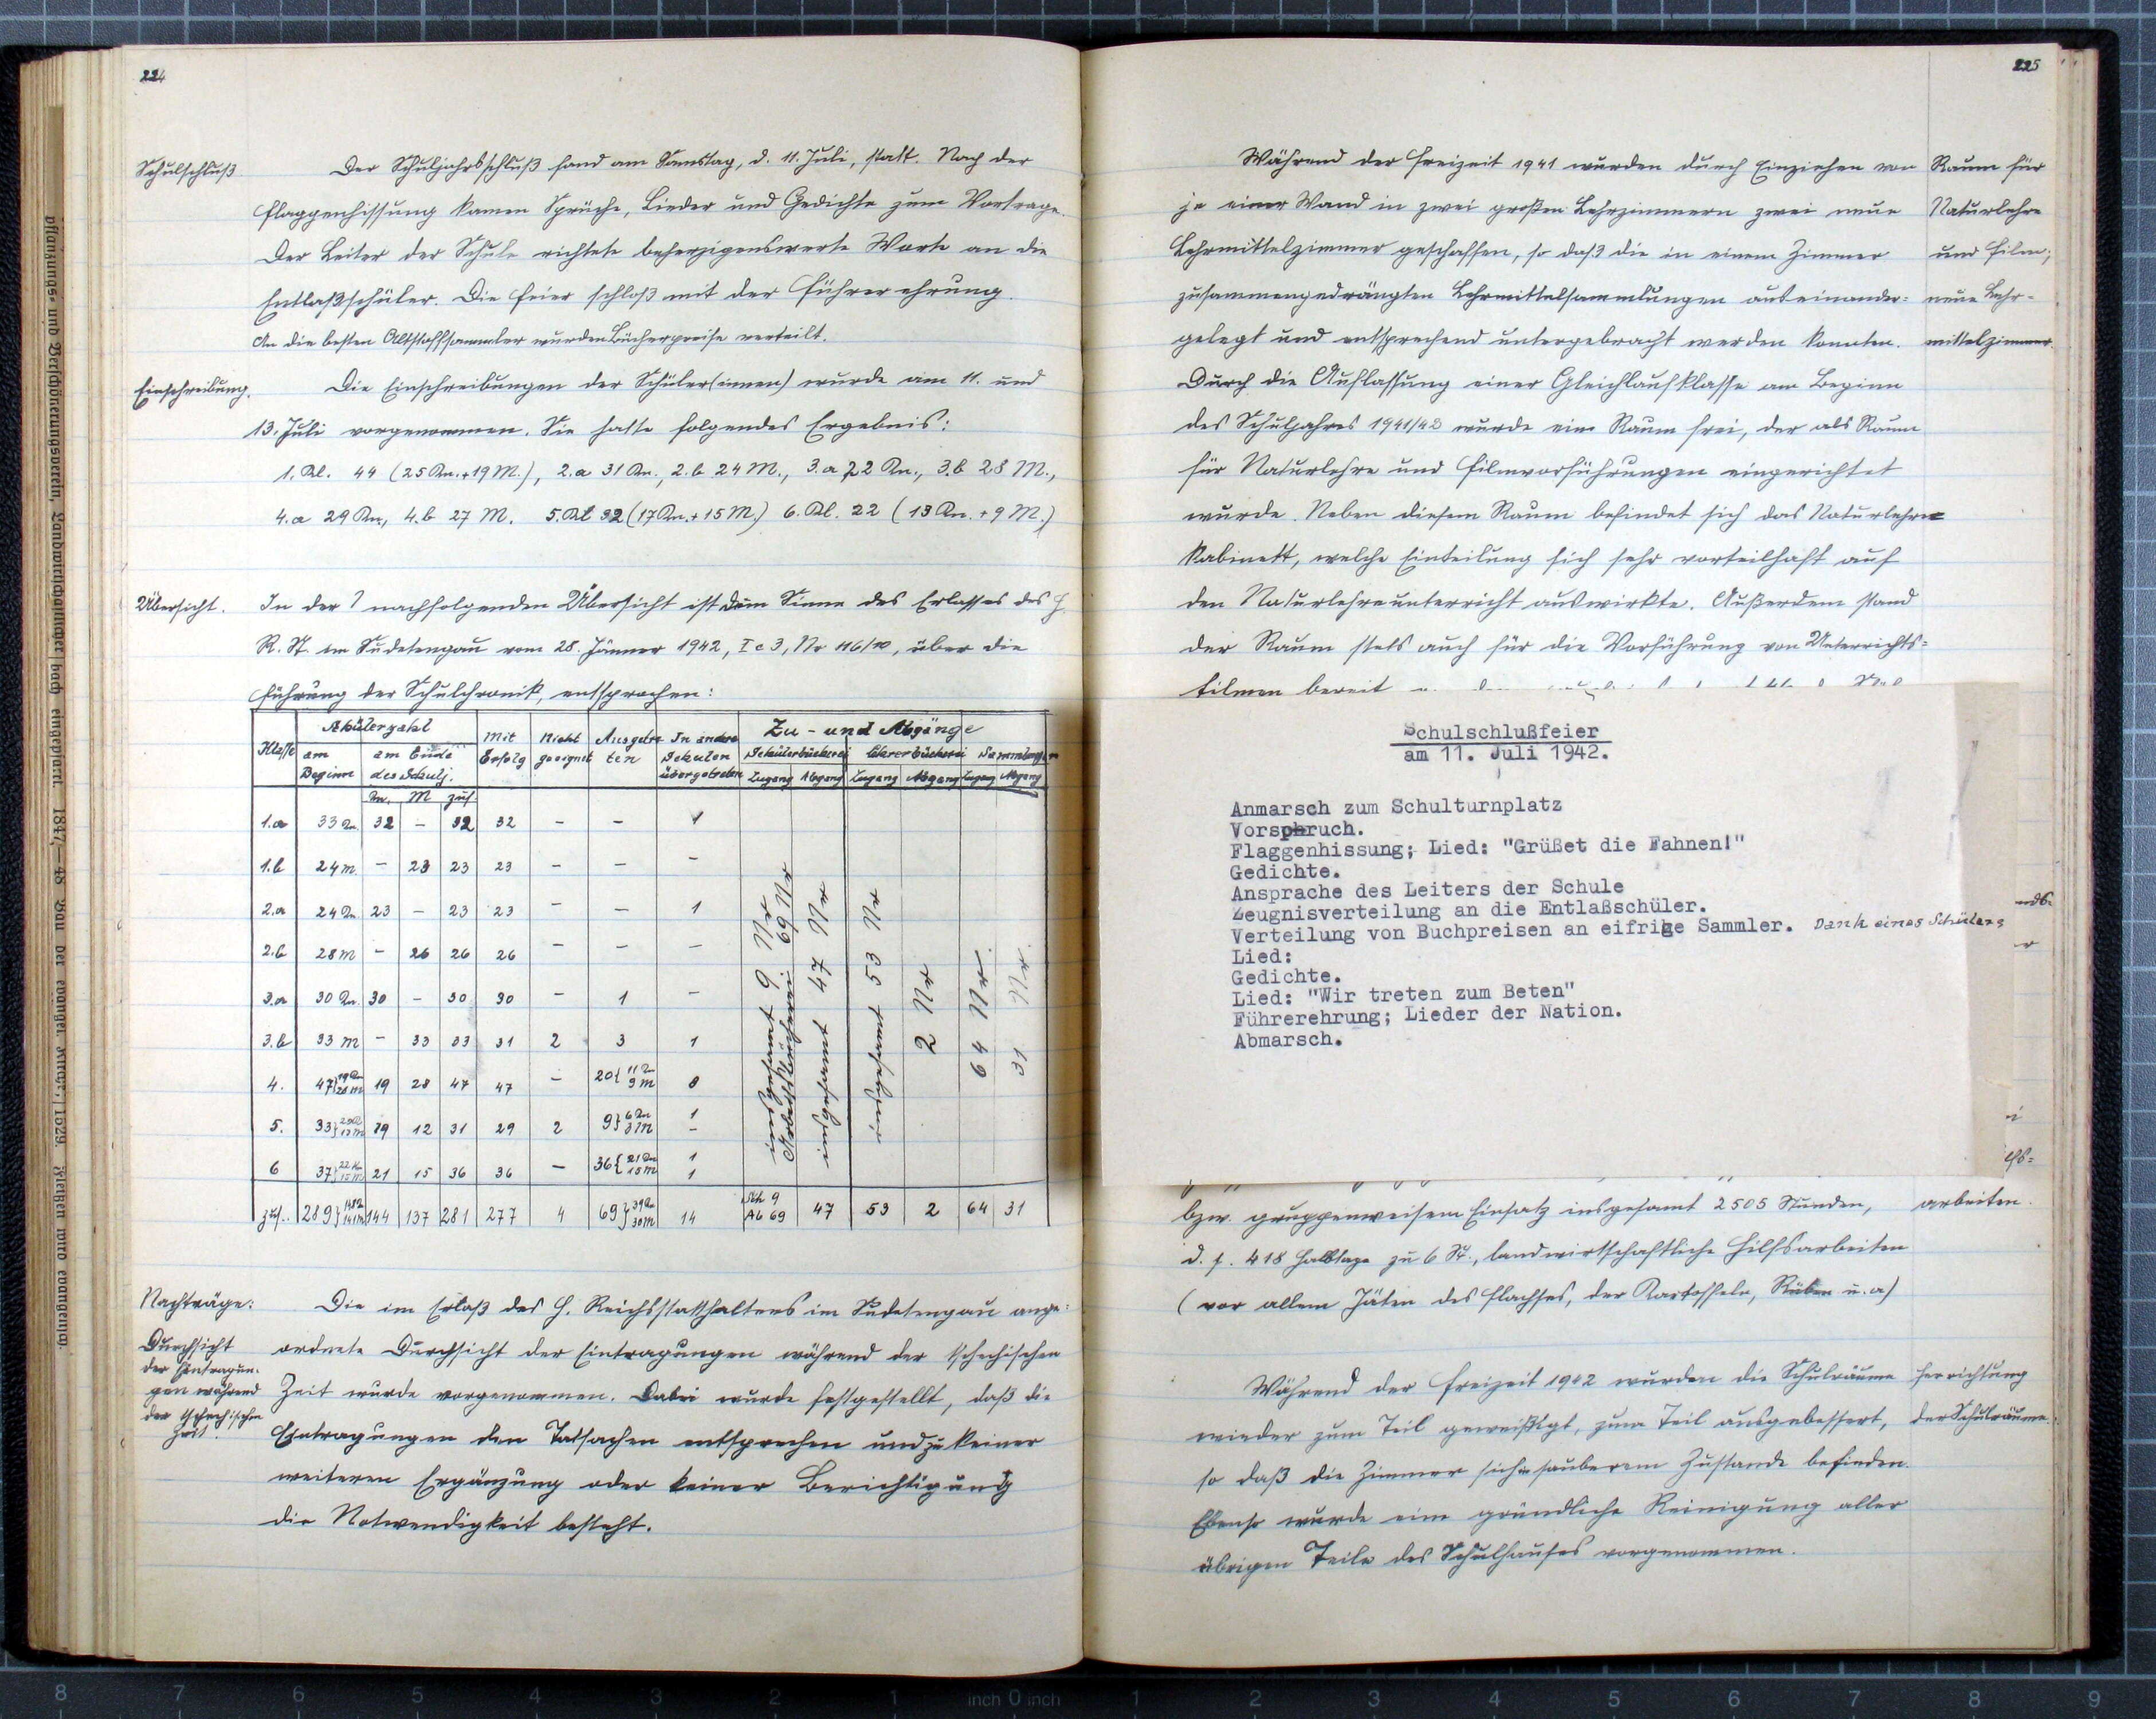 224
Schulschluß.
Der Schuljahrsschluß fand am Samstag, d. 11. Juli, statt. Nach der
Flaggenhissung kamen Sprüche, Lieder und Gedichte zum Vortrage.
Der Leiter der Schule richtete beherzigenswerte Worte an die
Entlaßschüler. Die Feier schloß mit der Führerehrung.
An die besten Altstoffsammler wurden Bücherpreise verteilt.
Einschreibung.
Die Einschreibungen der Schüler(innen) wurde am 11. und
13. Juli vorgenommen. Sie hatte folgendes Ergebnis:
1. Kl. 44 (25 Kn. + 19 M.), 2.a 31 Kn., 2.b 24 M., 3.a 22 Kn., 3.b 28 M.,
4.a 29 Kn, 4.b 27 M. 5. Kl 32 (17 Kn. + 15 M.) 6. Kl. 22 (13 Kn. + 9 M.)
Übersicht.
In der nachfolgenden Übersicht ist dem Sinne des Erlasses des H.
R. St. im Sudetengau vom 28. Jänner 1942, I c 3, Nr 116/10, über die
Führung der Schulchronik, entsprochen:
Klasse Schülerzahl Mit Erfolg Nicht geeignet Ausgetreten In andere Schulen übergetreten Zu- und Abgänge
am Beginn am Ende des Schulj. Schülerbücherei Lehrerbücherei Sammlungen
Kn. M zus. Zugang Abgang Zugang Abgang Zugang Abgang
1.a 33 Kn. 32 – 32 32 – – 1
1.b 24 M – 23 23 23 – – –
2.a 24 Kn 23 – 23 23 – – 1
2.b 28 M – 26 26 26 – – –
3.a 30 Kn. 30 – 30 30 – 1 –
3.b 33 M – 33 33 31 2 3 1
4. 47 {19 Kn 28 M 19 28 47 47 – 20 { 11 Kn 9 M 8
5. 33 12 31 29 2 9 } 6 Kn 3 M 1 –
6 37 {22 Kn 15 M 21 15 36 36 – 36 { 21 Kn 15 M 1 1
insgesamt 9 Nr
69 Nr
insgesamt 47 Nr
insgesamt 53 Nr
2 Nr
64 Nr.
31 Nr.
zus.. 289 144 137 281 277 4 69 } 39 Kn 30 M 14 Sch 9 Ab 69 47 53 2 64 31
Nachträge:
Durchsicht
der Eintragun-
gen während
der tschechischen
Zeit.
Die im Erlaß des H. Reichsstatthalters im Sudetengau ange-
ordnete Durchsicht der Eintragungen während der tschechischen
Zeit wurde vorgenommen. Dabei wurde festgestellt, daß die
Eintragungen den Tatsachen entsprechen und zu keiner
weiteren Ergänzung oder keiner Berichtigung
die Notwendigkeit besteht.
225
Während der Freizeit 1941 wurden durch Einziehen von
je einer Wand in zwei großen Lehrzimmern zwei neue
Lehrmittelzimmer geschaffen, so daß die in einem Zimmer
zusammengedrängten Lehrmittelsammlungen auseinander-
gelegt und entsprechend untergebracht werden konnten.
Durch die Auflassung einer Gleichlaufklasse am Beginn
des Schuljahres 1941/42 wurde ein Raum frei, der als Raum
für Naturlehre und Filmvorführungen eingerichtet
wurde. Neben diesem Raum befindet sich das Naturlehre
kabinett, welche Einteilung sich sehr vorteilhaft auf
den Naturlehreunterricht auswirkte. Außerdem stand
der Raum stets auch für die Vorführung von Unterrichts-
filmen bereit
Raum für
Naturlehre
und Film;
neue Lehr-
mittelzimmer.
Schulschlußfeier
am 11. Juli 1942.
Anmarsch zum Schulturnplatz
Vorspruch.
Flaggenhissung; Lied: "Grüßet die Fahnen!"
Gedichte.
Ansprache des Leiters der Schule
Zeugnisverteilung an die Entlaßschüler.
Verteilung von Buchpreisen an eifrige Sammler. Dank eines Schülers
Lied:
Gedichte.
Lied: "Wir treten zum Beten"
Führerehrung; Lieder der Nation.
Abmarsch.
bzw. gruppenweisem Einsatz insgesamt 2505 Stunden,
d. s. 418 Halbtage zu 6 St., landwirtschaftliche Hilfsarbeiten
(vor allem Jäten des Flachses, der Kartoffeln, Rüben u. a)
arbeiten.
Während der Freizeit 1942 wurden die Schulräume
wieder zum Teil geweißigt, zum Teil ausgebessert,
so daß die Zimmer sich in sauberem Zustande befinden.
Ebenso wurde eine gründliche Reinigung aller
übrigen Teile des Schulhauses vorgenommen.
Herrichtung
der Schulräume.
pflanzungs- und Verschönerungsverein, Landwirtschaftlicher
8 7 6 5 4 3 2 1 inch 0 inch 1 2 3 4 5 6 7 8 9